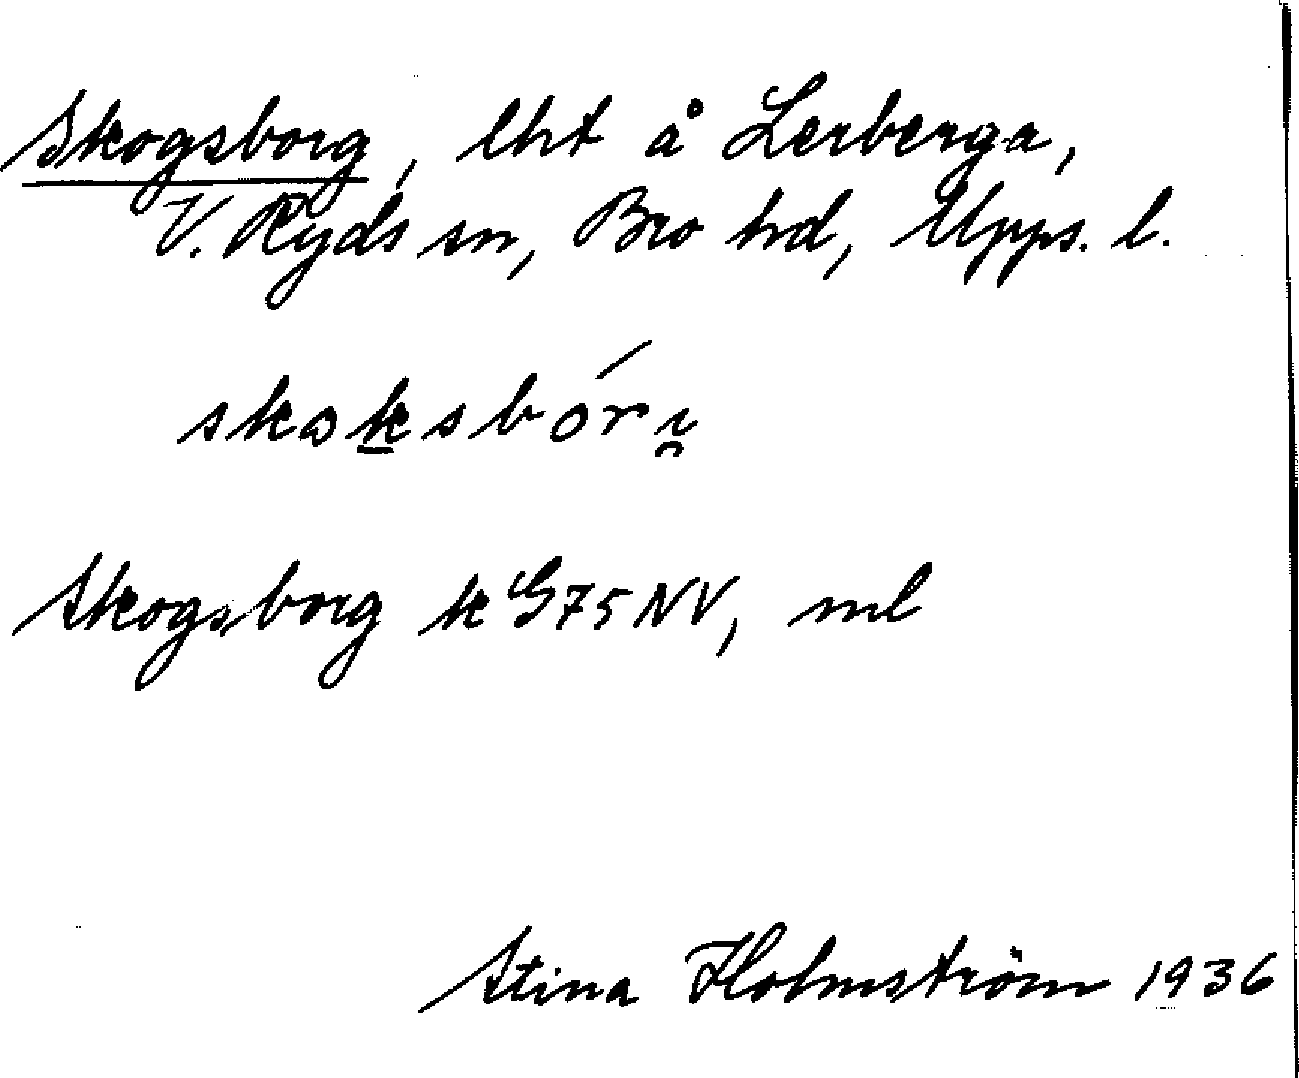 Skogsborg, lht å Lerberga,
V. Ryds sn, Bro hd, Upps. l.
skoksbórı̯
Skogsborg k G75NV, ml
Stina Holmström 1936